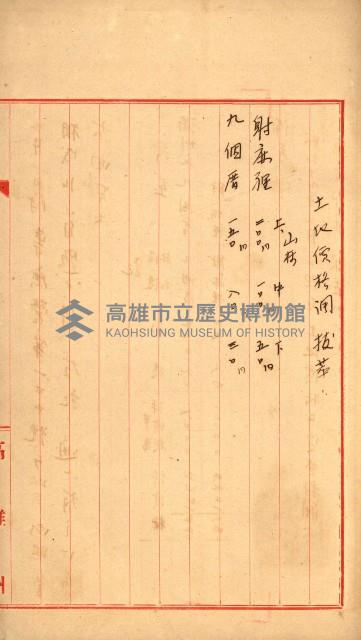 土地價格調 拔萃
山林
上 中 下
射麻裡 二〇〇円 一〇〇 五〇円
九個厝 一五〇円 八〇 三〇円
高雄市立歷史博物館
KAOHSIUNG MUSEUM OF HISTORY
高雄州